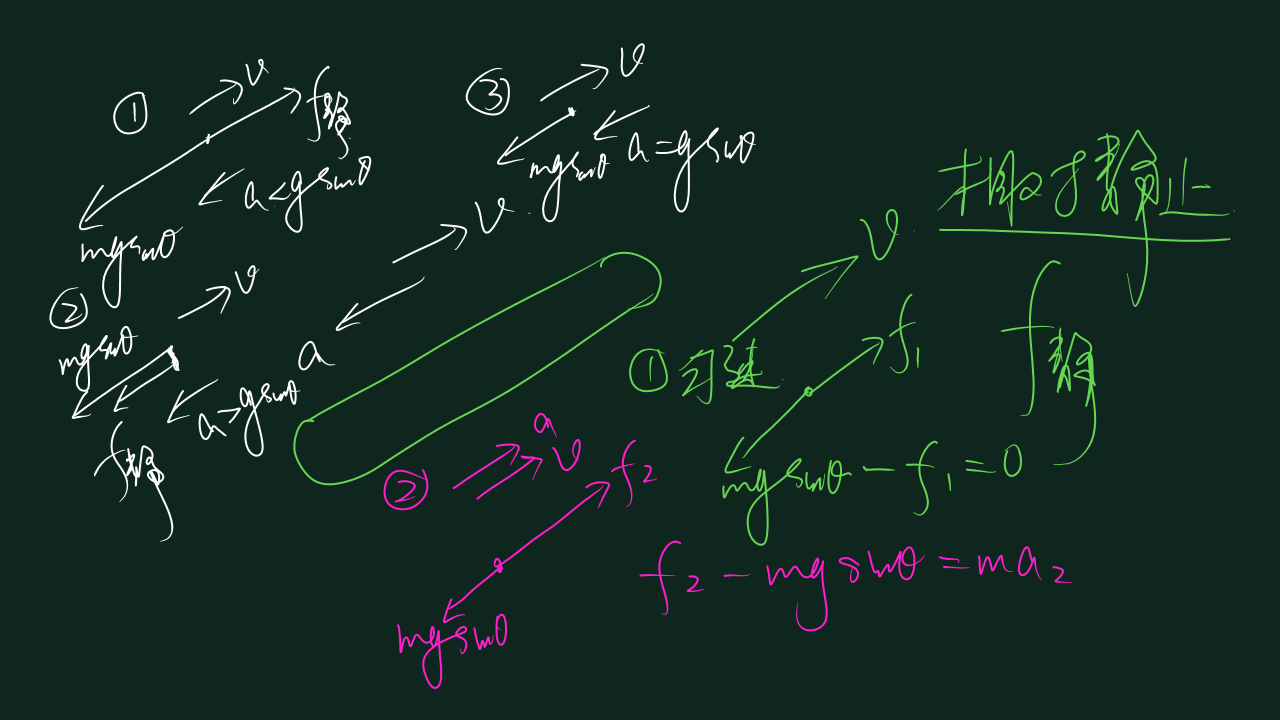 ① v f静
a<gsinθ
mgsinθ
② v
mgsinθ
a>gsinθ
f静
③ v
mgsinθ a=gsinθ
v
a
相对静止
v
① 匀速 f₁ f静
mgsinθ-f₁=0
② a
v f₂
mgsinθ
f₂-mgsinθ=ma₂